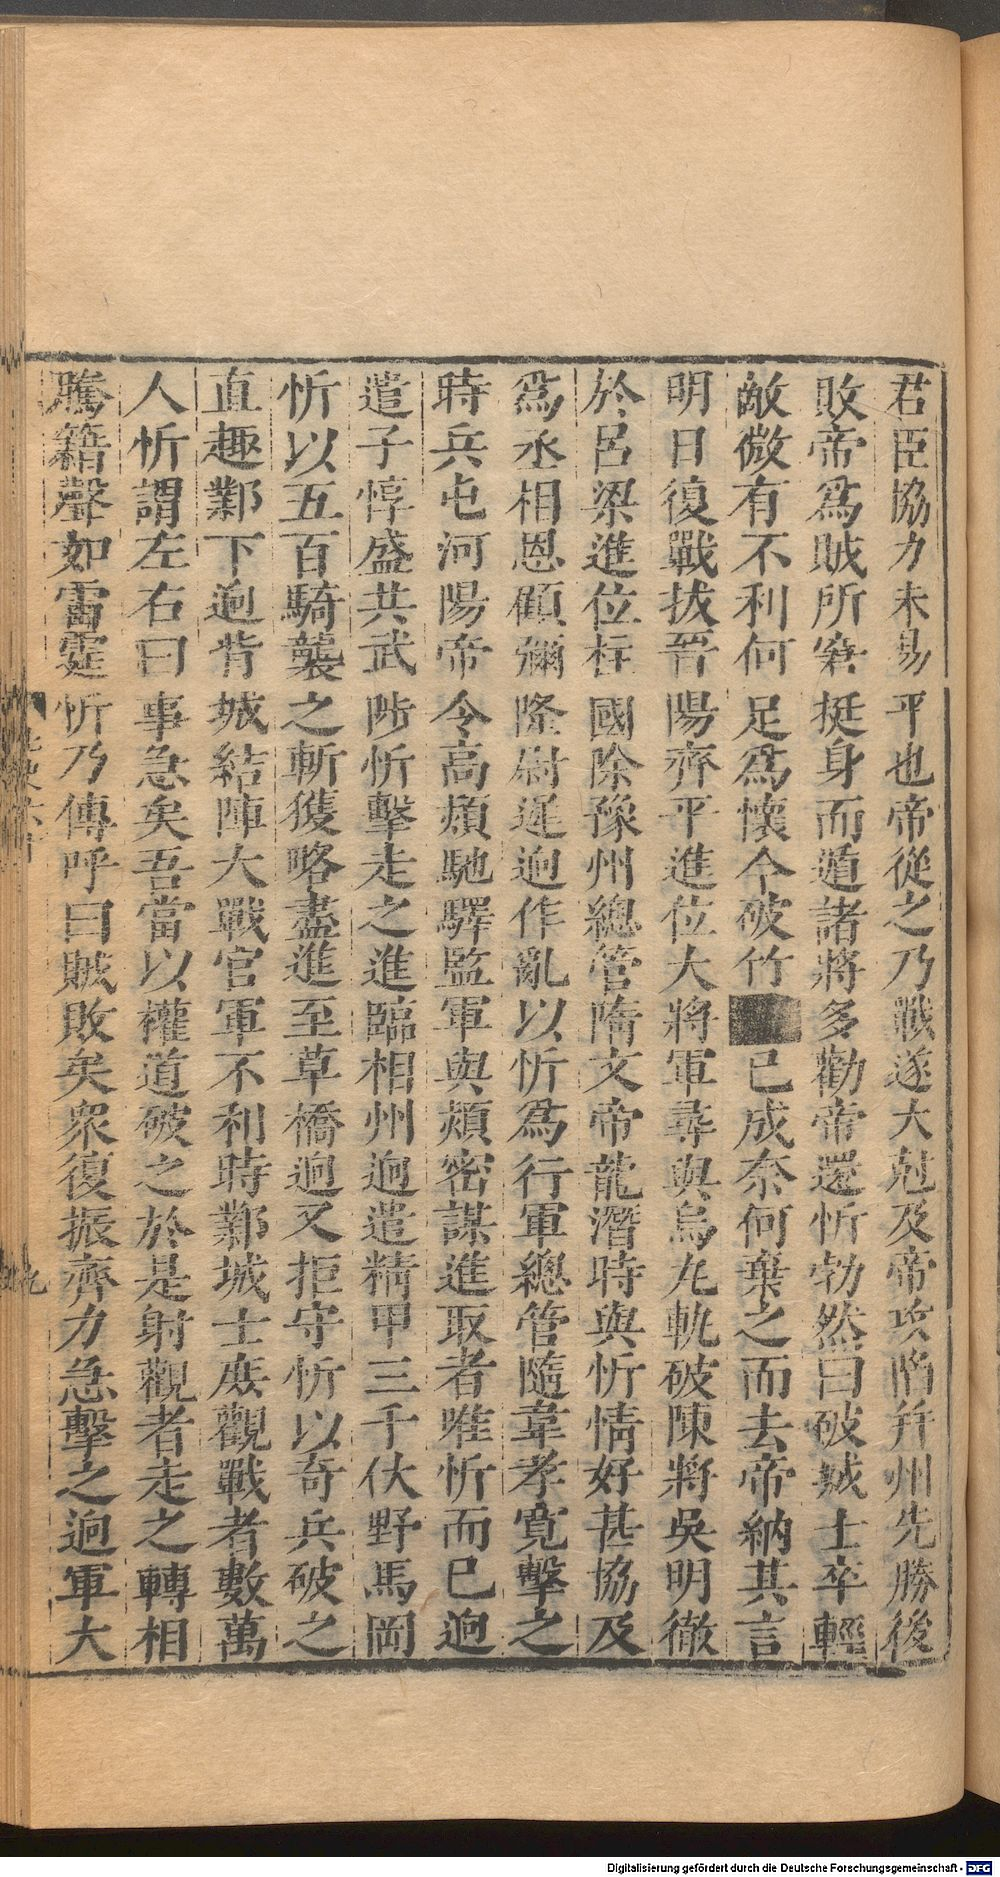 君臣恊力未易平也帝從之乃戰遂大尅及帝攻陷幷州先勝後
敗帝爲賊所窘挺身而遁諸將多勸帝還忻勃然曰破城士卒輕
敵微有不利何足爲懷今破竹已成奈何棄之而去帝納其言
明日復戰拔晉陽齊平進位大將軍尋與烏丸軌破陳將吳明徹
於呂梁進位柱國除豫州總管隋文帝龍潛時與忻情好甚協及
爲丞相恩顧彌隆尉遲迥作亂以忻爲行軍總管隨韋孝寬擊之
時兵屯河陽帝令高熲馳驛監軍與熲密謀進取者唯忻而已迥
遣子惇盛兵武陟忻擊走之進臨相州迥遣精甲三千伏野馬岡
忻以五百騎襲之斬獲略盡進至草橋迥又拒守忻以奇兵破之
直趣鄴下迥背城結陣大戰官軍不利時鄴城士庶觀戰者數萬
人忻謂左右曰事急矣吾當以權道破之於是射觀者走之轉相
騰籍聲如雷霆忻乃傳呼曰賊敗矣衆復振齊力急擊之迥軍大
九
Digitalisierung gefördert durch die Deutsche Forschungsgemeinschaft - DFG